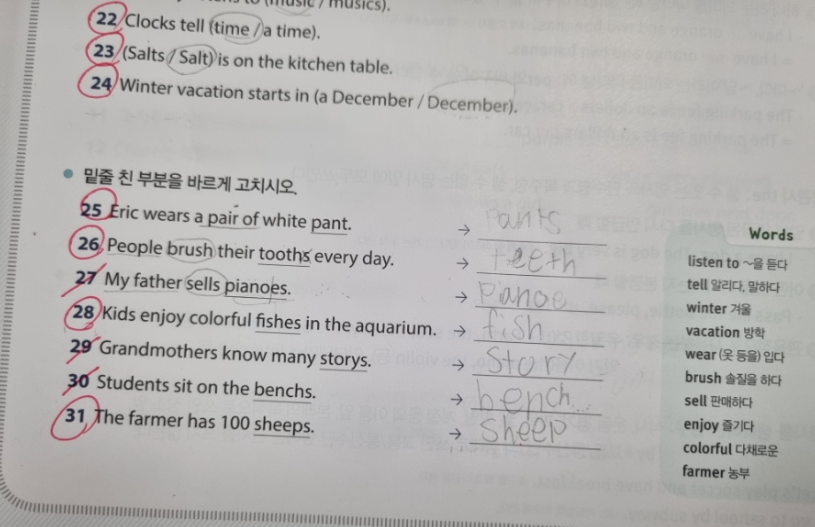 (music / musics).
22 Clocks tell (time / a time).
23 (Salts / Salt) is on the kitchen table.
24 Winter vacation starts in (a December / December).
밑줄 친 부분을 바르게 고치시오.
25 Eric wears a pair of white pant. → pants
26 People brush their tooths every day. → teeth
27 My father sells pianoes. → Pianoe
28 Kids enjoy colorful fishes in the aquarium. → fish
29 Grandmothers know many storys. → Story
30 Students sit on the benchs. → bench
31 The farmer has 100 sheeps. → Sheep
Words
listen to ~을 듣다
tell 알리다, 말하다
winter 겨울
vacation 방학
wear (옷 등을) 입다
brush 솔질을 하다
sell 판매하다
enjoy 즐기다
colorful 다채로운
farmer 농부